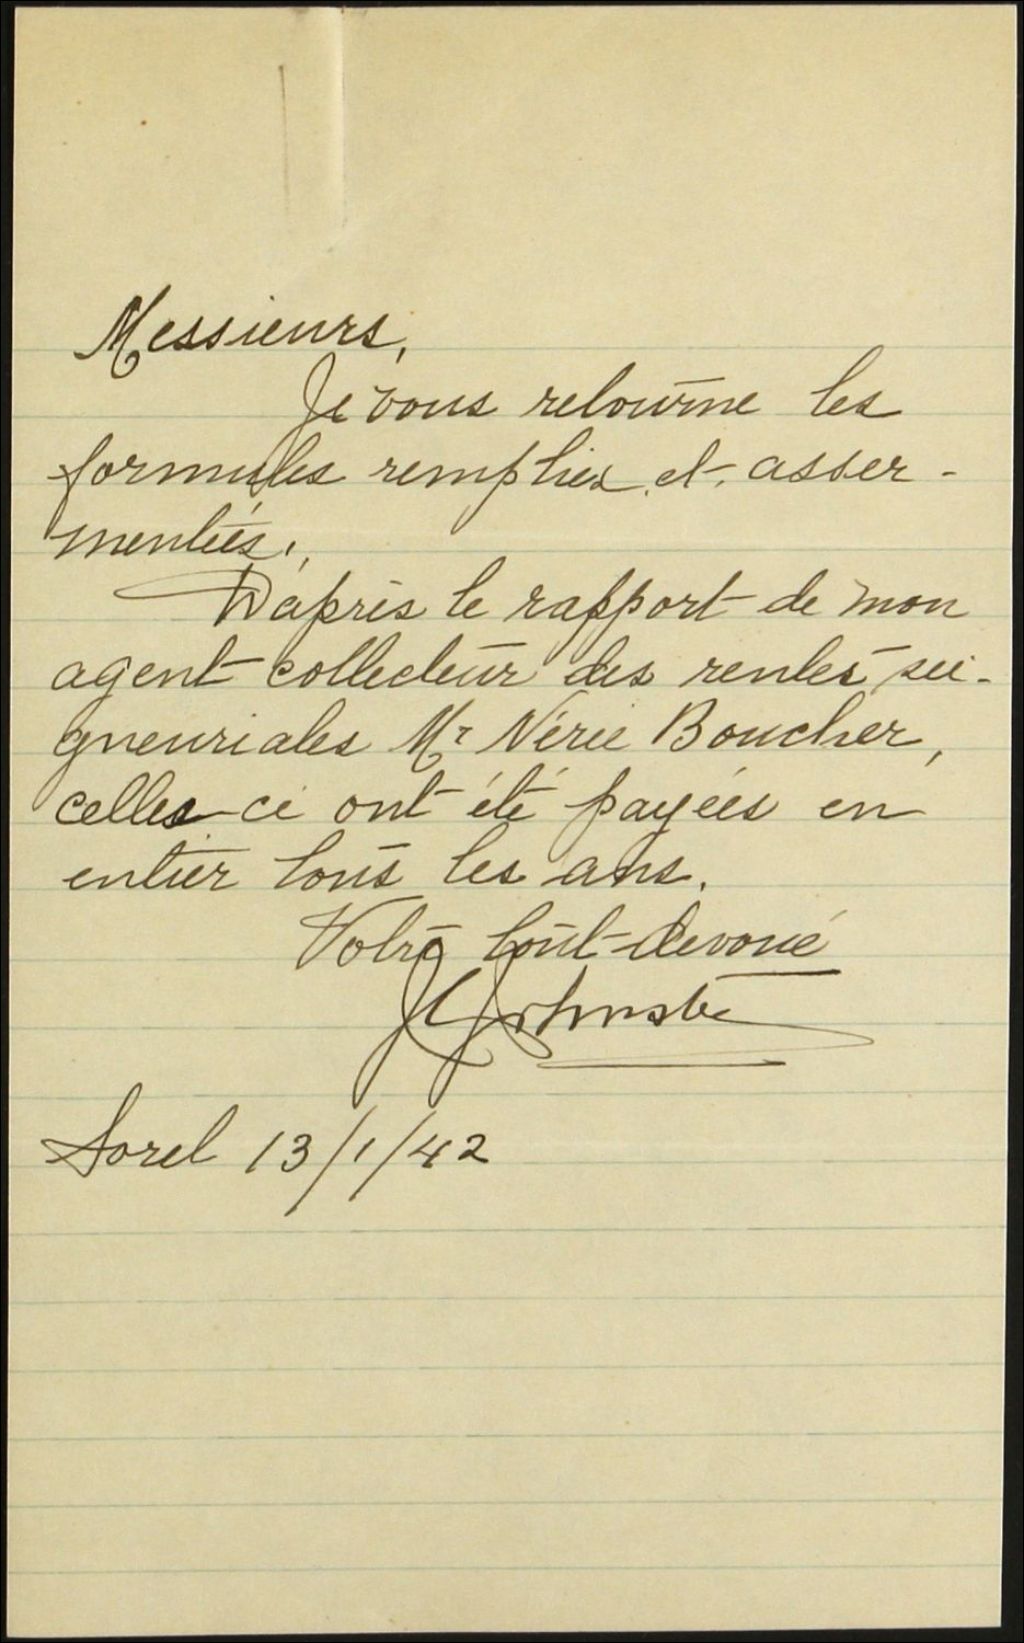 Messieurs,
Je vous retourne les
formules remplies et asser-
mentées.
D'après le rapport de mon
agent-collecteur des rentes sei-
gneuriales Mr Nérée Boucher,
celles-ci ont été payées en
entier tous les ans.
Votre tout-dévoué
Sorel 13/1/42